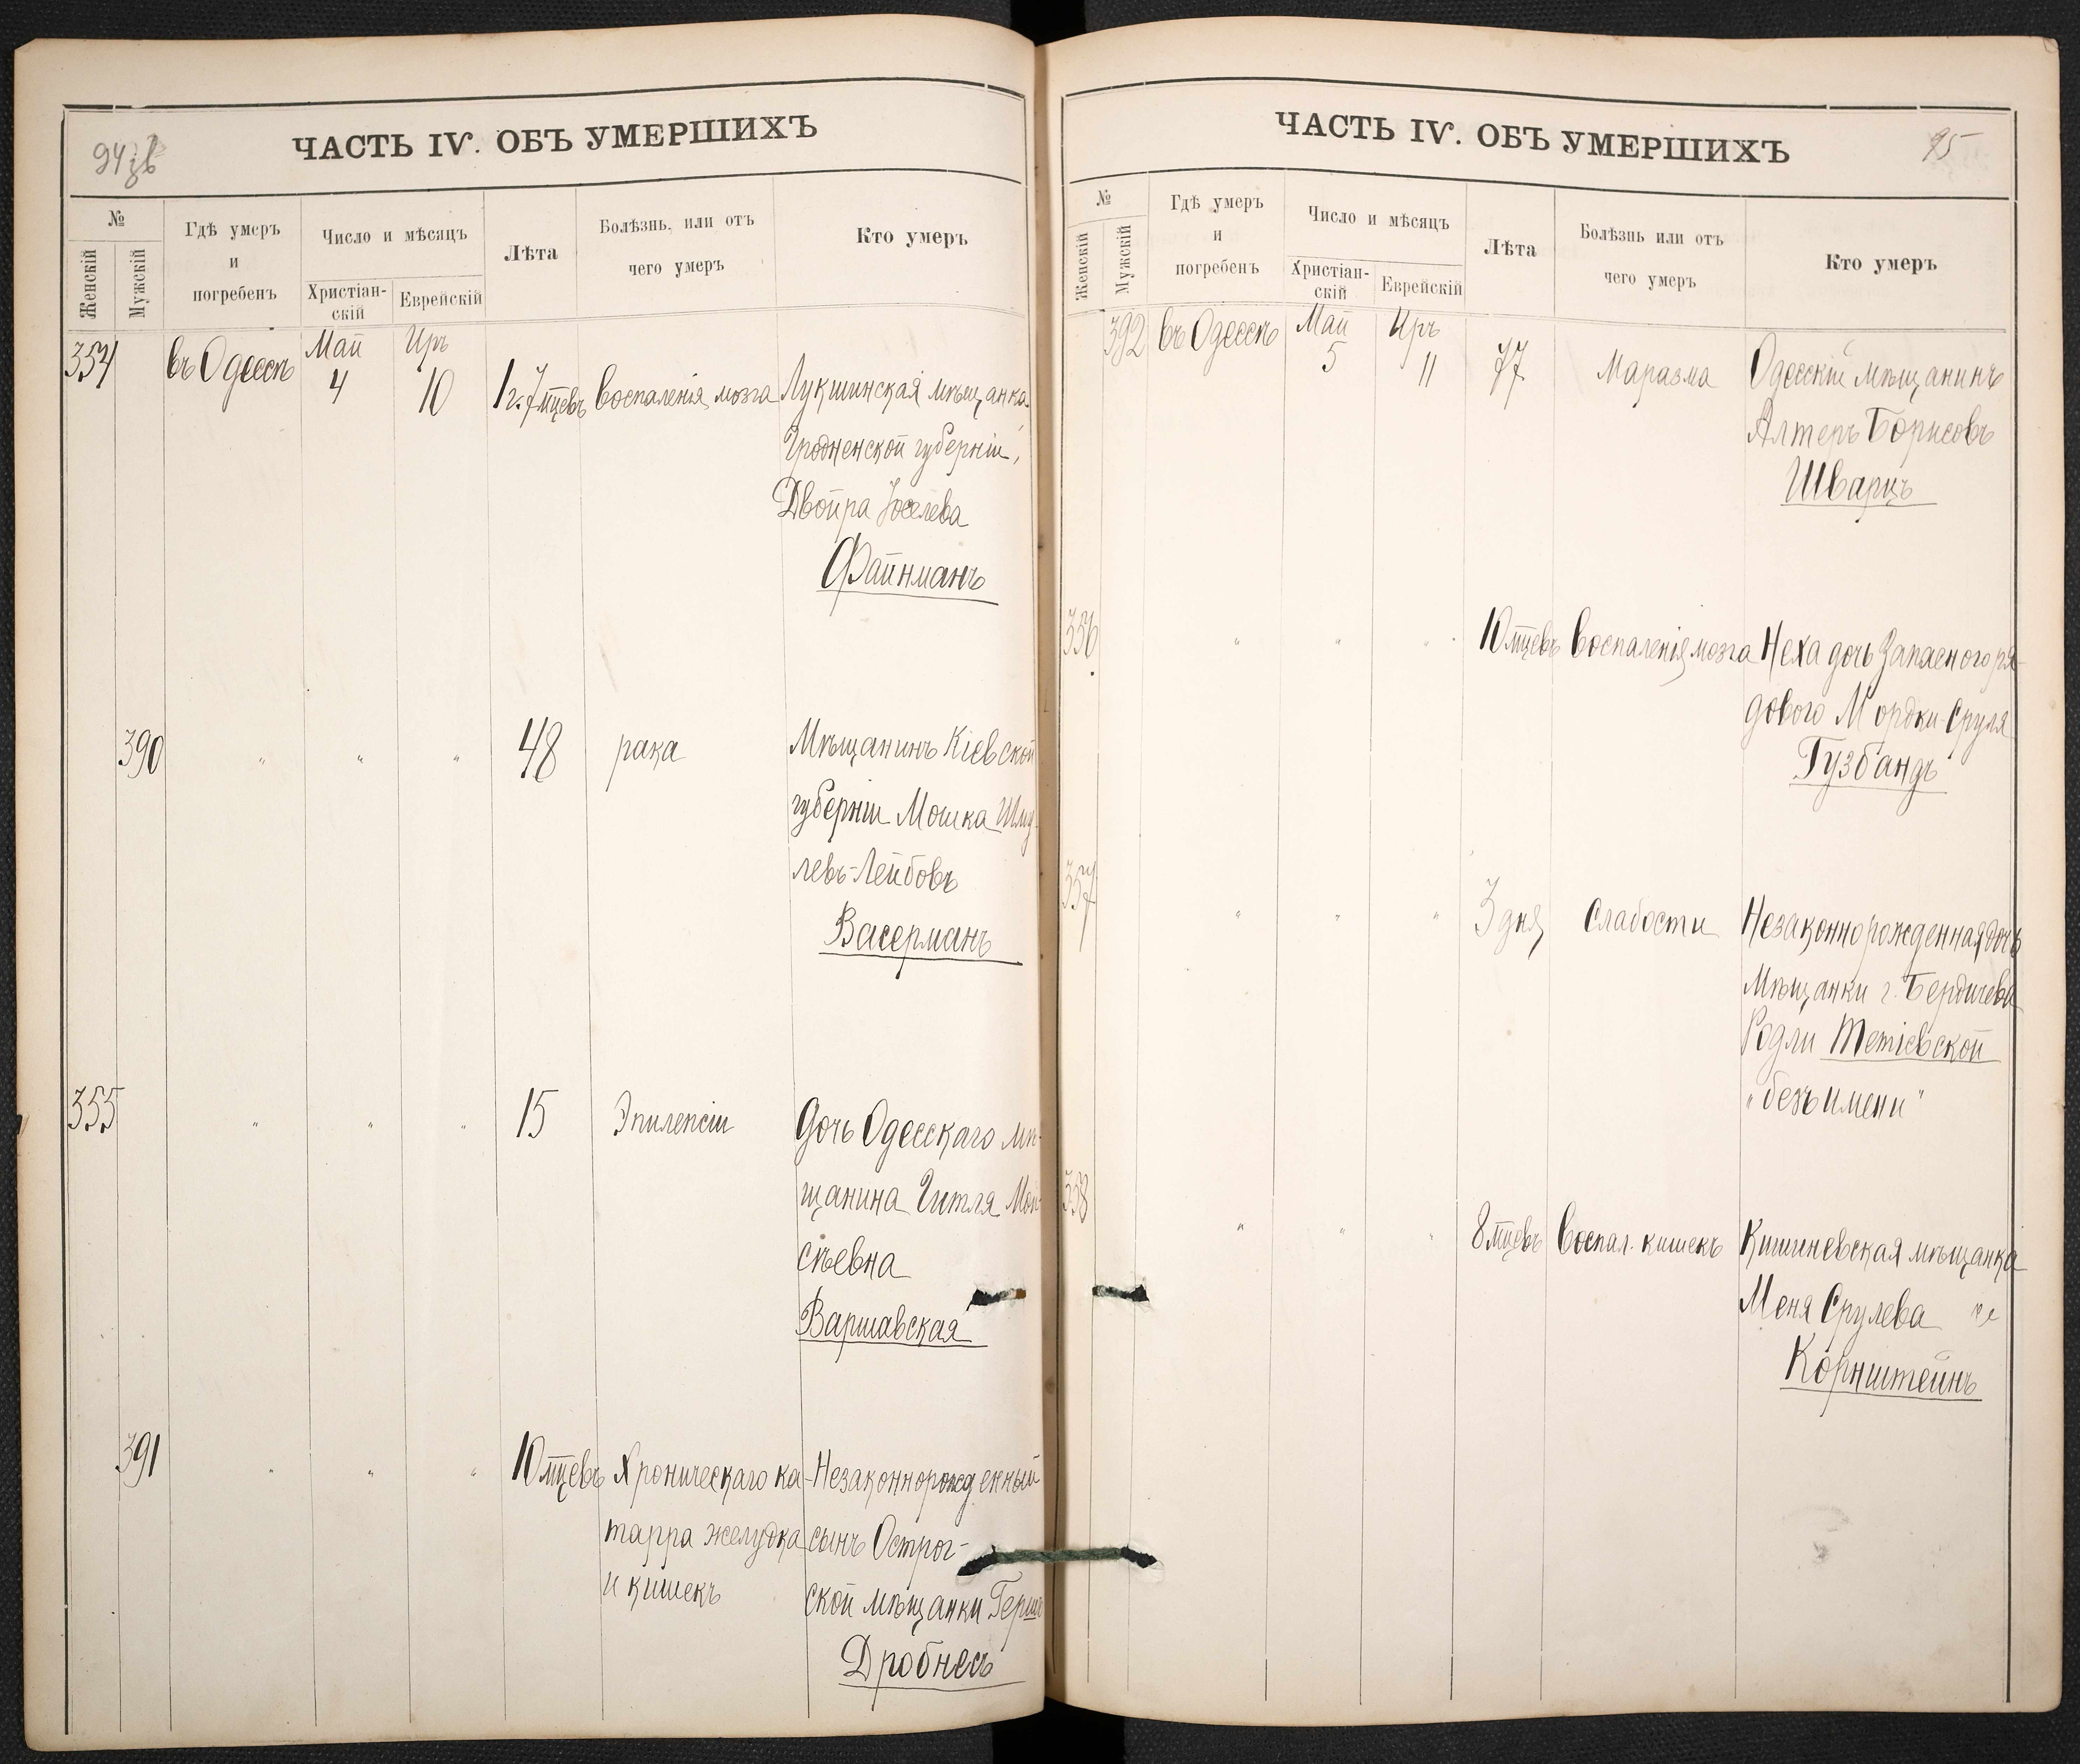 94 зв
ЧАСТЬ IV. ОБЪ УМЕРШИХЪ
№
Женскій
Мужскій
Гдѣ умеръ
и
погребенъ
Число и мѣсяцъ
Христіан-
скій
Еврейскій
Лѣта
Болѣзнь, или отъ
чего умеръ
Кто умеръ
354 въ Одессѣ Май 4 Иръ 10 1 г. 7 мцевъ Воспаленія мозга Лукшинская мѣщанка
Гродненской губерніи,
Двойра Іоселева
Файнманъ
390 " " " 48 рака Мѣщанинъ Кіевской
губерніи Мошка
левъ-Лейбовъ
Васерманъ
355 " " " 15 Эпилепсіи Дочь Одесскаго мѣ-
щанина Гитля Мои-
сѣевна
Варшавская
391 " " " 10 мцевъ Хроническаго ка- Незаконнорожденный
тарра желудка сынъ Острог-
и кишекъ ской мѣщанки Герш
Дробнесъ
95
ЧАСТЬ IV. ОБЪ УМЕРШИХЪ
№
Женскій
Мужскій
Гдѣ умеръ
и
погребенъ
Число и мѣсяцъ
Христіан-
скій
Еврейскій
Лѣта
Болѣзнь или отъ
чего умеръ
Кто умеръ
392 въ Одессѣ Май 5 Иръ 11 77 Маразма Одесскій мѣщанинъ
Алтеръ Борисовъ
Шварцъ
356 " " " 10 мцевъ Воспаленія мозга Неха дочь Запасного ря-
дового Мордки-Сруля
Гузбандъ
357 " " " 3 дня Слабости Незаконнорожденная дочь
Мѣщанки г. Бердичева
Родли Тетіевской
"безъ имени"
358 " " " 8 мцевъ Воспал. кишекъ Кишиневская мѣщанка
Меня Срулева
Корнштейнъ